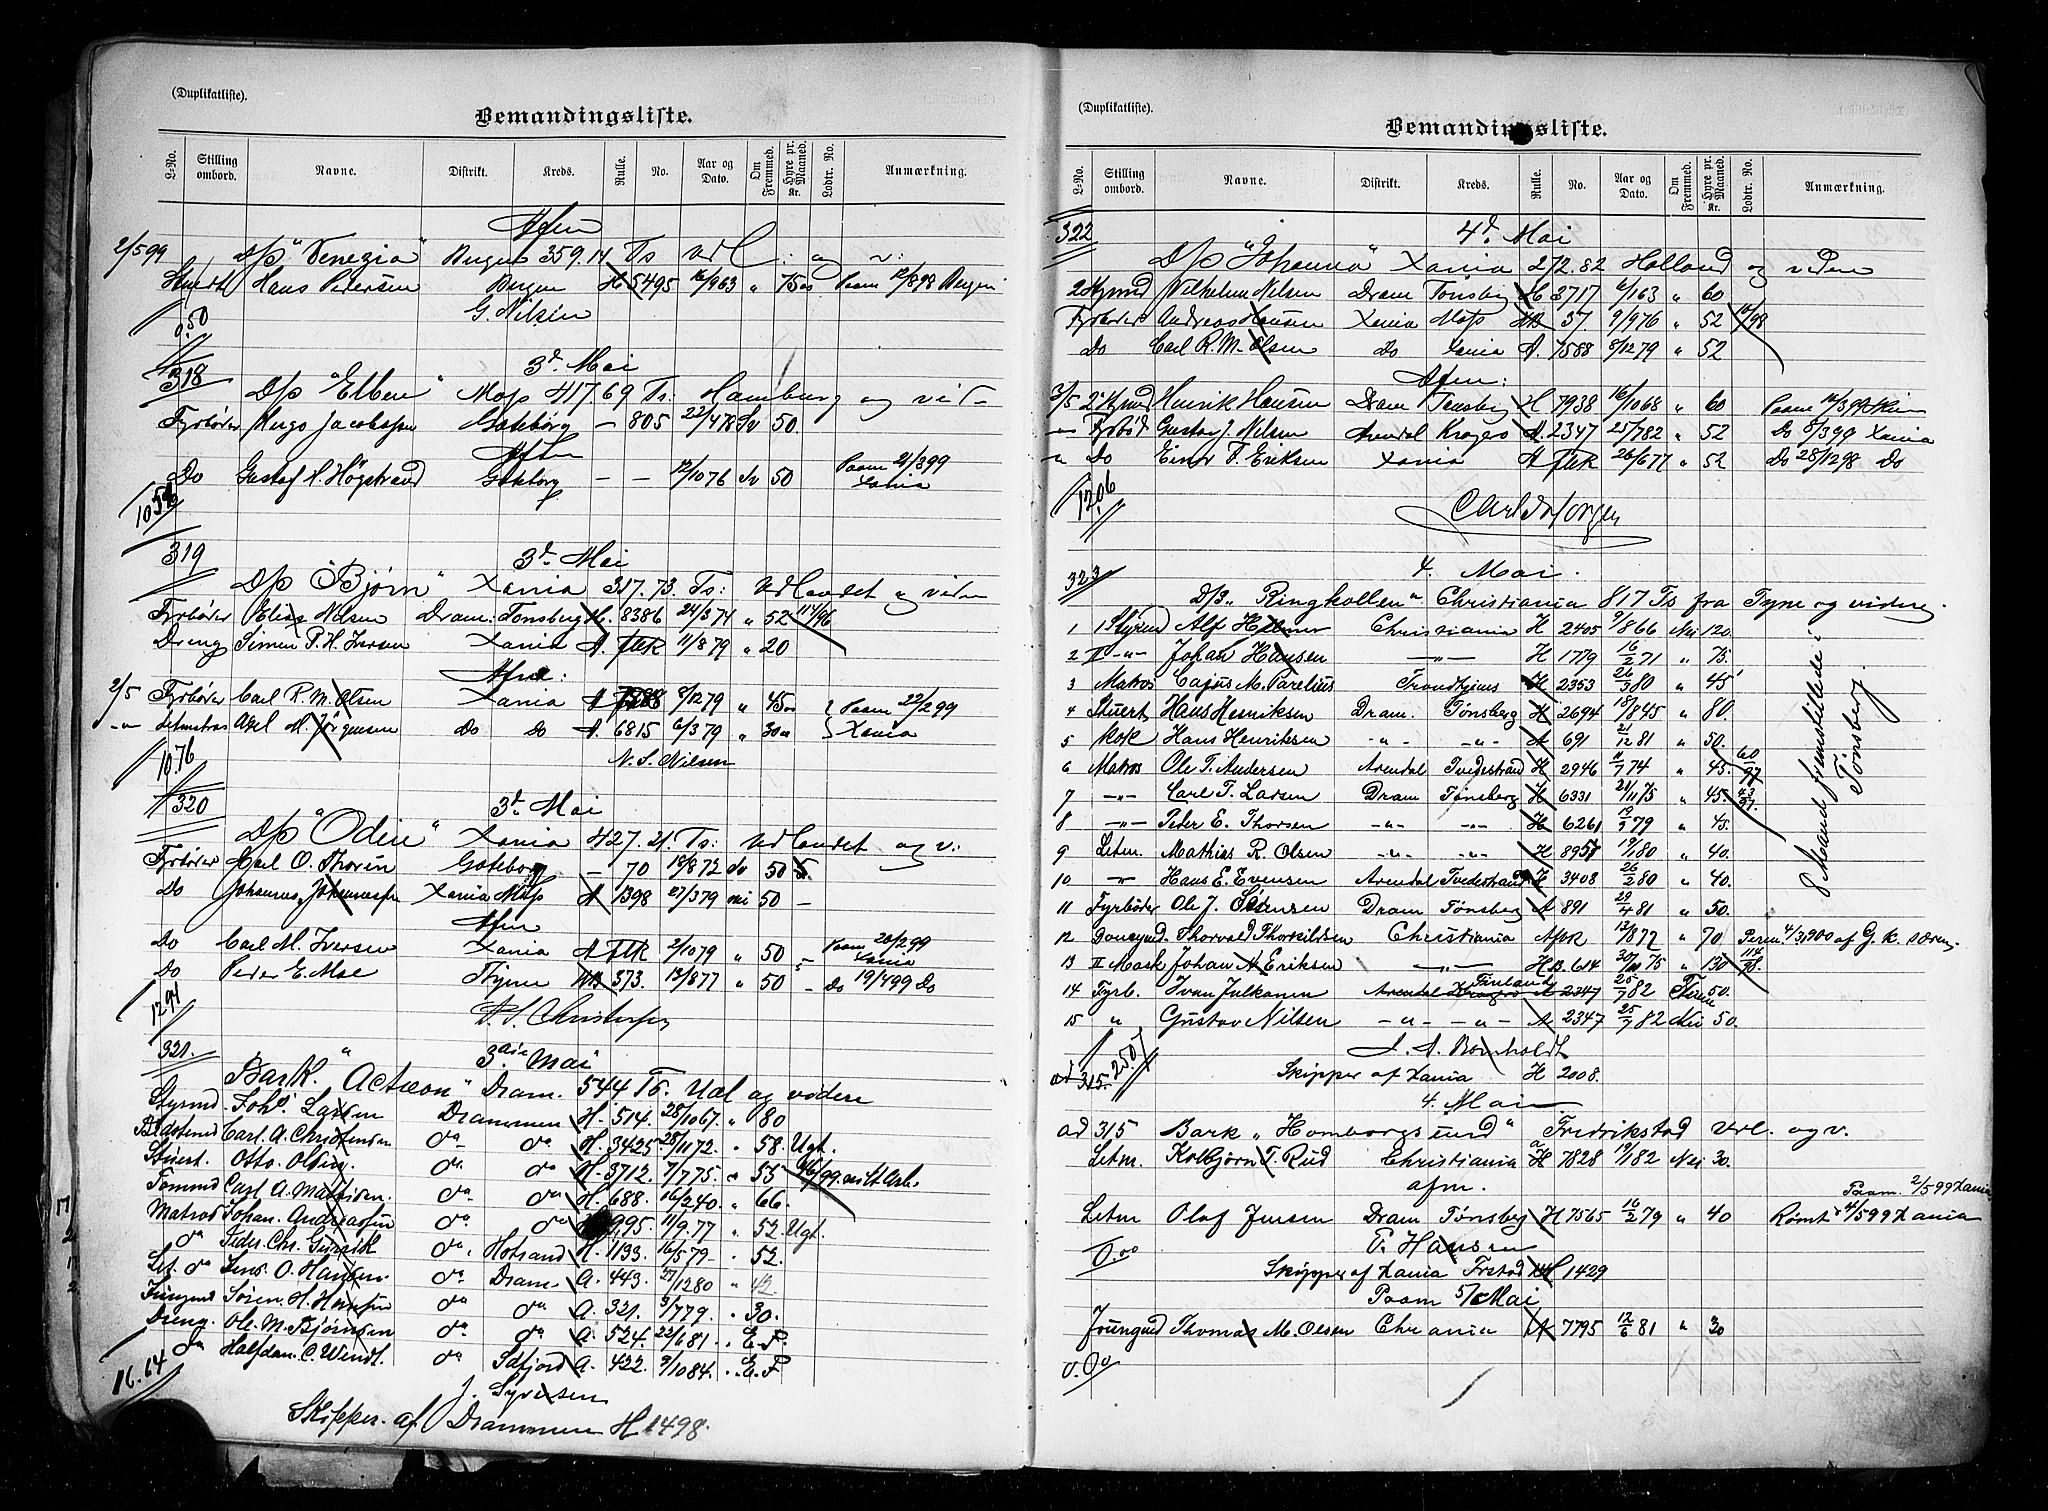 (Duplikatliste).
Bemandingsliste.
L-No. Stilling ombord. Navne. Distrikt. Kreds. Rulle. No. Aar og Dato. Om Fremmed. Hyre pr. Maaned. Kr. Lodtr. No. Anmærkning.
Afm
2/5 99 D/s "Venezia" Bergen 359.14 Ts
Stuert Hans Petersen Bergen H 5495 16/9 63 " 75 00 Paam 12/8 98 Bergen
G. Nilsen
0.50
318 3d Mai
D/s "Elben" Moss 417.69 Ts. Hamburg og vid-
Fyrbøter Hugo Jacobsson Gøteborg — 805 22/4 78 Sv 50.
Afm
Do Gustaf A. Högstrand Gøteborg — — 12/10 76 Sv 50 Paam 21/3 99 Xania
10.52
319 3d Mai
D/s "Bjørn" Xania 317.73 Ts: Udlandet og viden
Fyrbøter Elias Nilsen Dram: Tønsberg H. 8386 24/3 74 " 52 114/96
Dreng Simen P. H. Iversen Xania A. flk 11/8 79 " 20
Afm:
2/5 Fyrbøter Carl R. M. Olsen Xania A 7588 8/12 79 " 45 00 Paam 22/2 99
-"- Letmatros Axel M. Jørgensen Do Do A. 6815 6/3 79 " 30 00 Xania
N. S. Nilsen
10.76
320 3d Mai
D/s "Odin" Xania 427.21. Ts: Udlandet og v:
Fyrbøter Carl O. Thorén Gøteborg — 70 18/8 72 Sv 50
Do Johannes Johannessen Xania Moss A 1398 27/3 79 nei 50 —
Afm
Do Carl M. Iversen Xania A flk 2/10 79 " 50 Paam 20/2 99 Xania
Do Peder E. Moe 373. 13/8 77 " 50 — Do 19/4 99 Do
12.94
321. 3die Mai
Bark. "Actæon" Dram. 544 Ts. Udl og videre
Styrmd Johs. Larsen Drammen H. 514. 28/10 67. " 80
Baadsmd Carl. A. Christensen do do H. 3425 25/11 72. " 58. Ugt.
Stuert. Otto. Olsen. do do H. 3712. 7/7 75. " 55 96/99 milt. Arb.
Tømmd Carl. A. Mathisen. do do H. 688. 16/2 40. " 66.
Matros Johan. Andreassen do do 995. 11/9 77 " 52 Ugt.
do Peder. Chr. Gunsik do, Hotrand H. 1133. 16/5 79 - . 52.
Let. do Jens. O. Hansen. do Dram A. 443. 27/12 80 " 42.
Jungmd Søren. H. Hansen do do A. 321. 3/7 79. . 30.
Dreng. Ole. M. Bjørnsen do do A. 524. 22/6 81. . E. F.
do Halfdan. C. Wendt. do A. 422. 9/10 84. . E. F
16.64 J. Syversen
Skipper. af. Drammen H 1498.
(Duplikatliste).
Bemandingsliste.
L-No. Stilling ombord. Navne. Distrikt. Kreds. Rulle. No. Aar og Dato. Om Fremmed. Hyre pr. Maaned. Kr. Lodtr. No. Anmærkning.
322 4d. Mai
D/s "Johanna" Xania 272.82 Holland og videre
2 Stymd Vilhelm Nilsen Dram Tønsberg H 3717 6/1 63 " 60
Fyrbøter Andreas Hansen Xania Moss 37. 9/9 76 " 52 10/98
Do Carl R. M. Olsen Do Xania A. 7588 8/12 79 " 52
Afm:
3/5 2 Stymd Henrik Hansen Dram Tønsberg H 7938 16/10 68 " 60
— Fyrbød Gustav J. Nilsen Arendal Kragerø A. 2347 25/7 82 " 52 Do Xania
" Do Einar F. Eriksen Xania A flk 26/6 77 " 52 Do 28/12 98 Do
12.06
323 4. Mai.
D/S „Ringkollen" Christiania 817 Ts fra Tyne og videre.
1 1 Styrmd Alf Christiania H 2405 9/8 66 Nei 120.
2 II -"- Johan Hansen —"— H 1779 16/2 71 " 75.
3 Matros Cajus M. Parelius Trondhjems H 2353 26/3 80 " 45
4 Stuert Hans Henriksen Dram. Tønsberg H 2694 18/8 45 " 80.
5 Kok Hans Henriksen -"- -"- A 691 21/12 81 " 50.
6 Matros Ole T. Andersen Arendal Tvedestrand H 2946 11/7 74 " 45. 60/97
7 -"- Carl T. Larsen Dram Tønsberg H 6331 21/11 75 " 45. 43/97.
8 -"- Peder E. Thorsen -"- -"- H 6261 12/9 79 " 45.
9 Letm. Mathias R. Olsen -"- -"- H 8957 19/1 80 " 40.
10 -"- Hans E. Evensen Arendal Tvedestrand H 3408 26/2 80 " 40.
11 Fyrbøder Ole J. Sørensen Dram Tønsberg A 891 29/4 81 " 50.
12 Donkymd. Thorvald Thorkildsen Christiania Aflk 13/8 72 " 70 Perm 4/3 1900 af G. K. Søren.
13 II Mask Johan A. Eriksen —"— H B. 614 30/11 75 " 130 114/98.
14 Fyrb. Ivan Julkanen Arendal Kragerø Finland A 2347 25/7 82 Finn 50.
15 " Gustav Nilsen -"- -"- A 2347 25/7 82 Nei 50.
8 Maand fremstillede i Tønsberg
25.07 J. A. Bomholdt
ad 315. Skipper af Xania H 2008.
4. Mai
ad 315 Bark „Homborgsund" Fredrikstad Udl. og v.
Letm. Kolbjørn T. Rud Christiania H 7828 19/1 82 Nei 30.
afm. Paam. 2/5 99 Xania
Letm Olaf Jensen Dram Tønsberg H 7565 16/2 79 " 40 Rømt 4/5 99 Xania
0.00 E. Hansen
Skipper af Xania Frstad H 1429
Paam 5/ Mai
Jungmd Thomas M. Olsen Chr ania A 7795 12/6 81 " 30
0.00